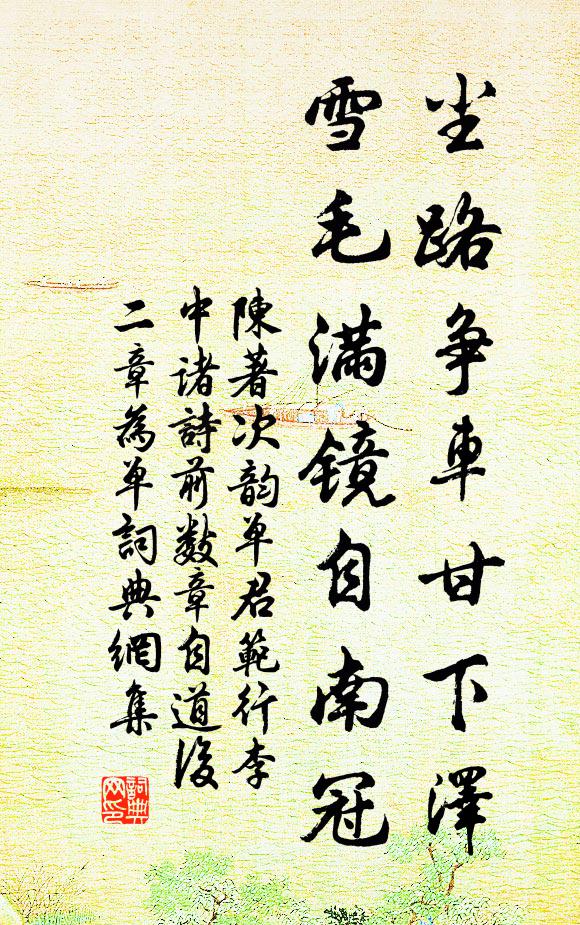 尘路争車甘下澤
雪毛滿镜自南冠
陳著次韵单君範行李
中诸詩前数章自道後
二章為单詞典網集
詞典网印